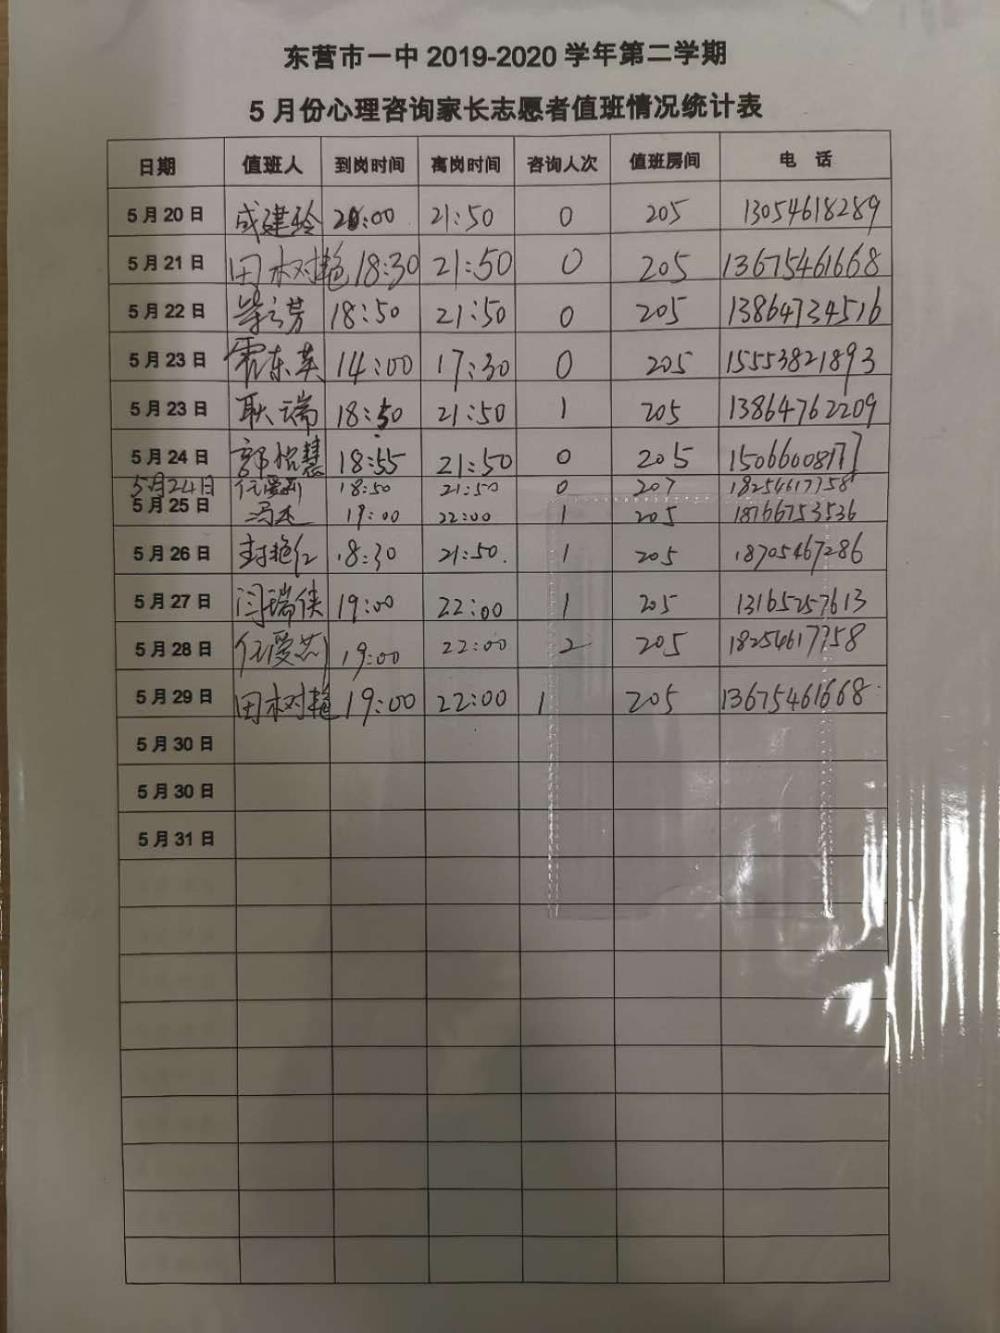 东营市一中2019-2020学年第二学期
5月份心理咨询家长志愿者值班情况统计表
日期 值班人 到岗时间 离岗时间 咨询人次 值班房间 电 话
5月20日 成建玲 20:00 21:50 0 205 13054618289
5月21日 田树艳 18:30 21:50 0 205 13675461668
5月22日 18:50 21:50 0 205 13864734516
5月23日 霍东英 14:00 17:30 0 205 15553821893
5月23日 耿瑞 18:50 21:50 1 205 13864762209
5月24日 郭悦慧 18:55 21:50 0 205
5月24日 任爱莉 18:50 21:50 0 207 18254617758
5月25日 冯杰 19:00 22:00 1 205 18766753536
5月26日 封艳红 18:30 21:50. 1 205 18705467286
5月27日 闫瑞侠 19:00 22:00 1 205 13165257613
5月28日 任爱莉 19:00 22:00 2 205 18254617758
5月29日 田树艳 19:00 22:00 1 205 13675461668
5月30日
5月30日
5月31日